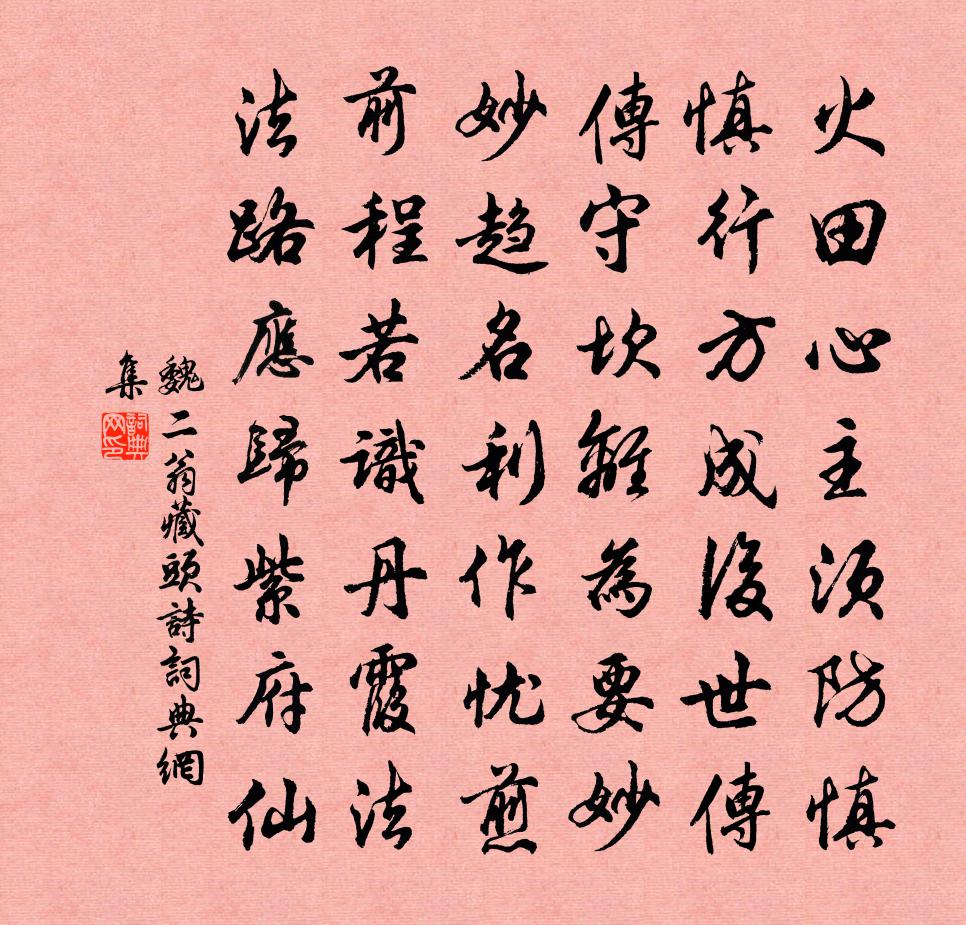 火田心主須防慎
慎行方成後世傳
傳守坎離為要妙
妙趨名利作忧煎
前程若識丹霞法
法路應歸紫府仙
魏二翁藏頭詩詞典網
集
詞典網印